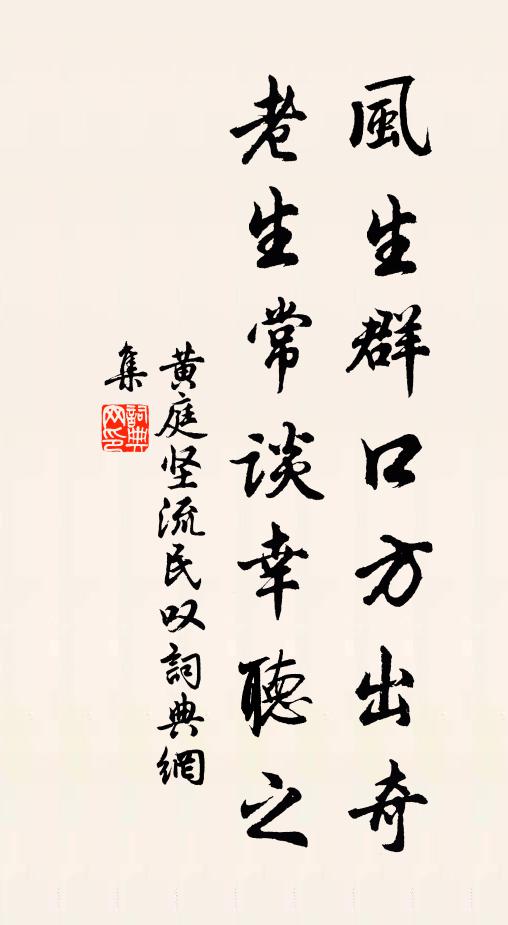 風生群口方出奇
老生常談幸聽之
黄庭坚流民叹詞典網
集
詞典网印